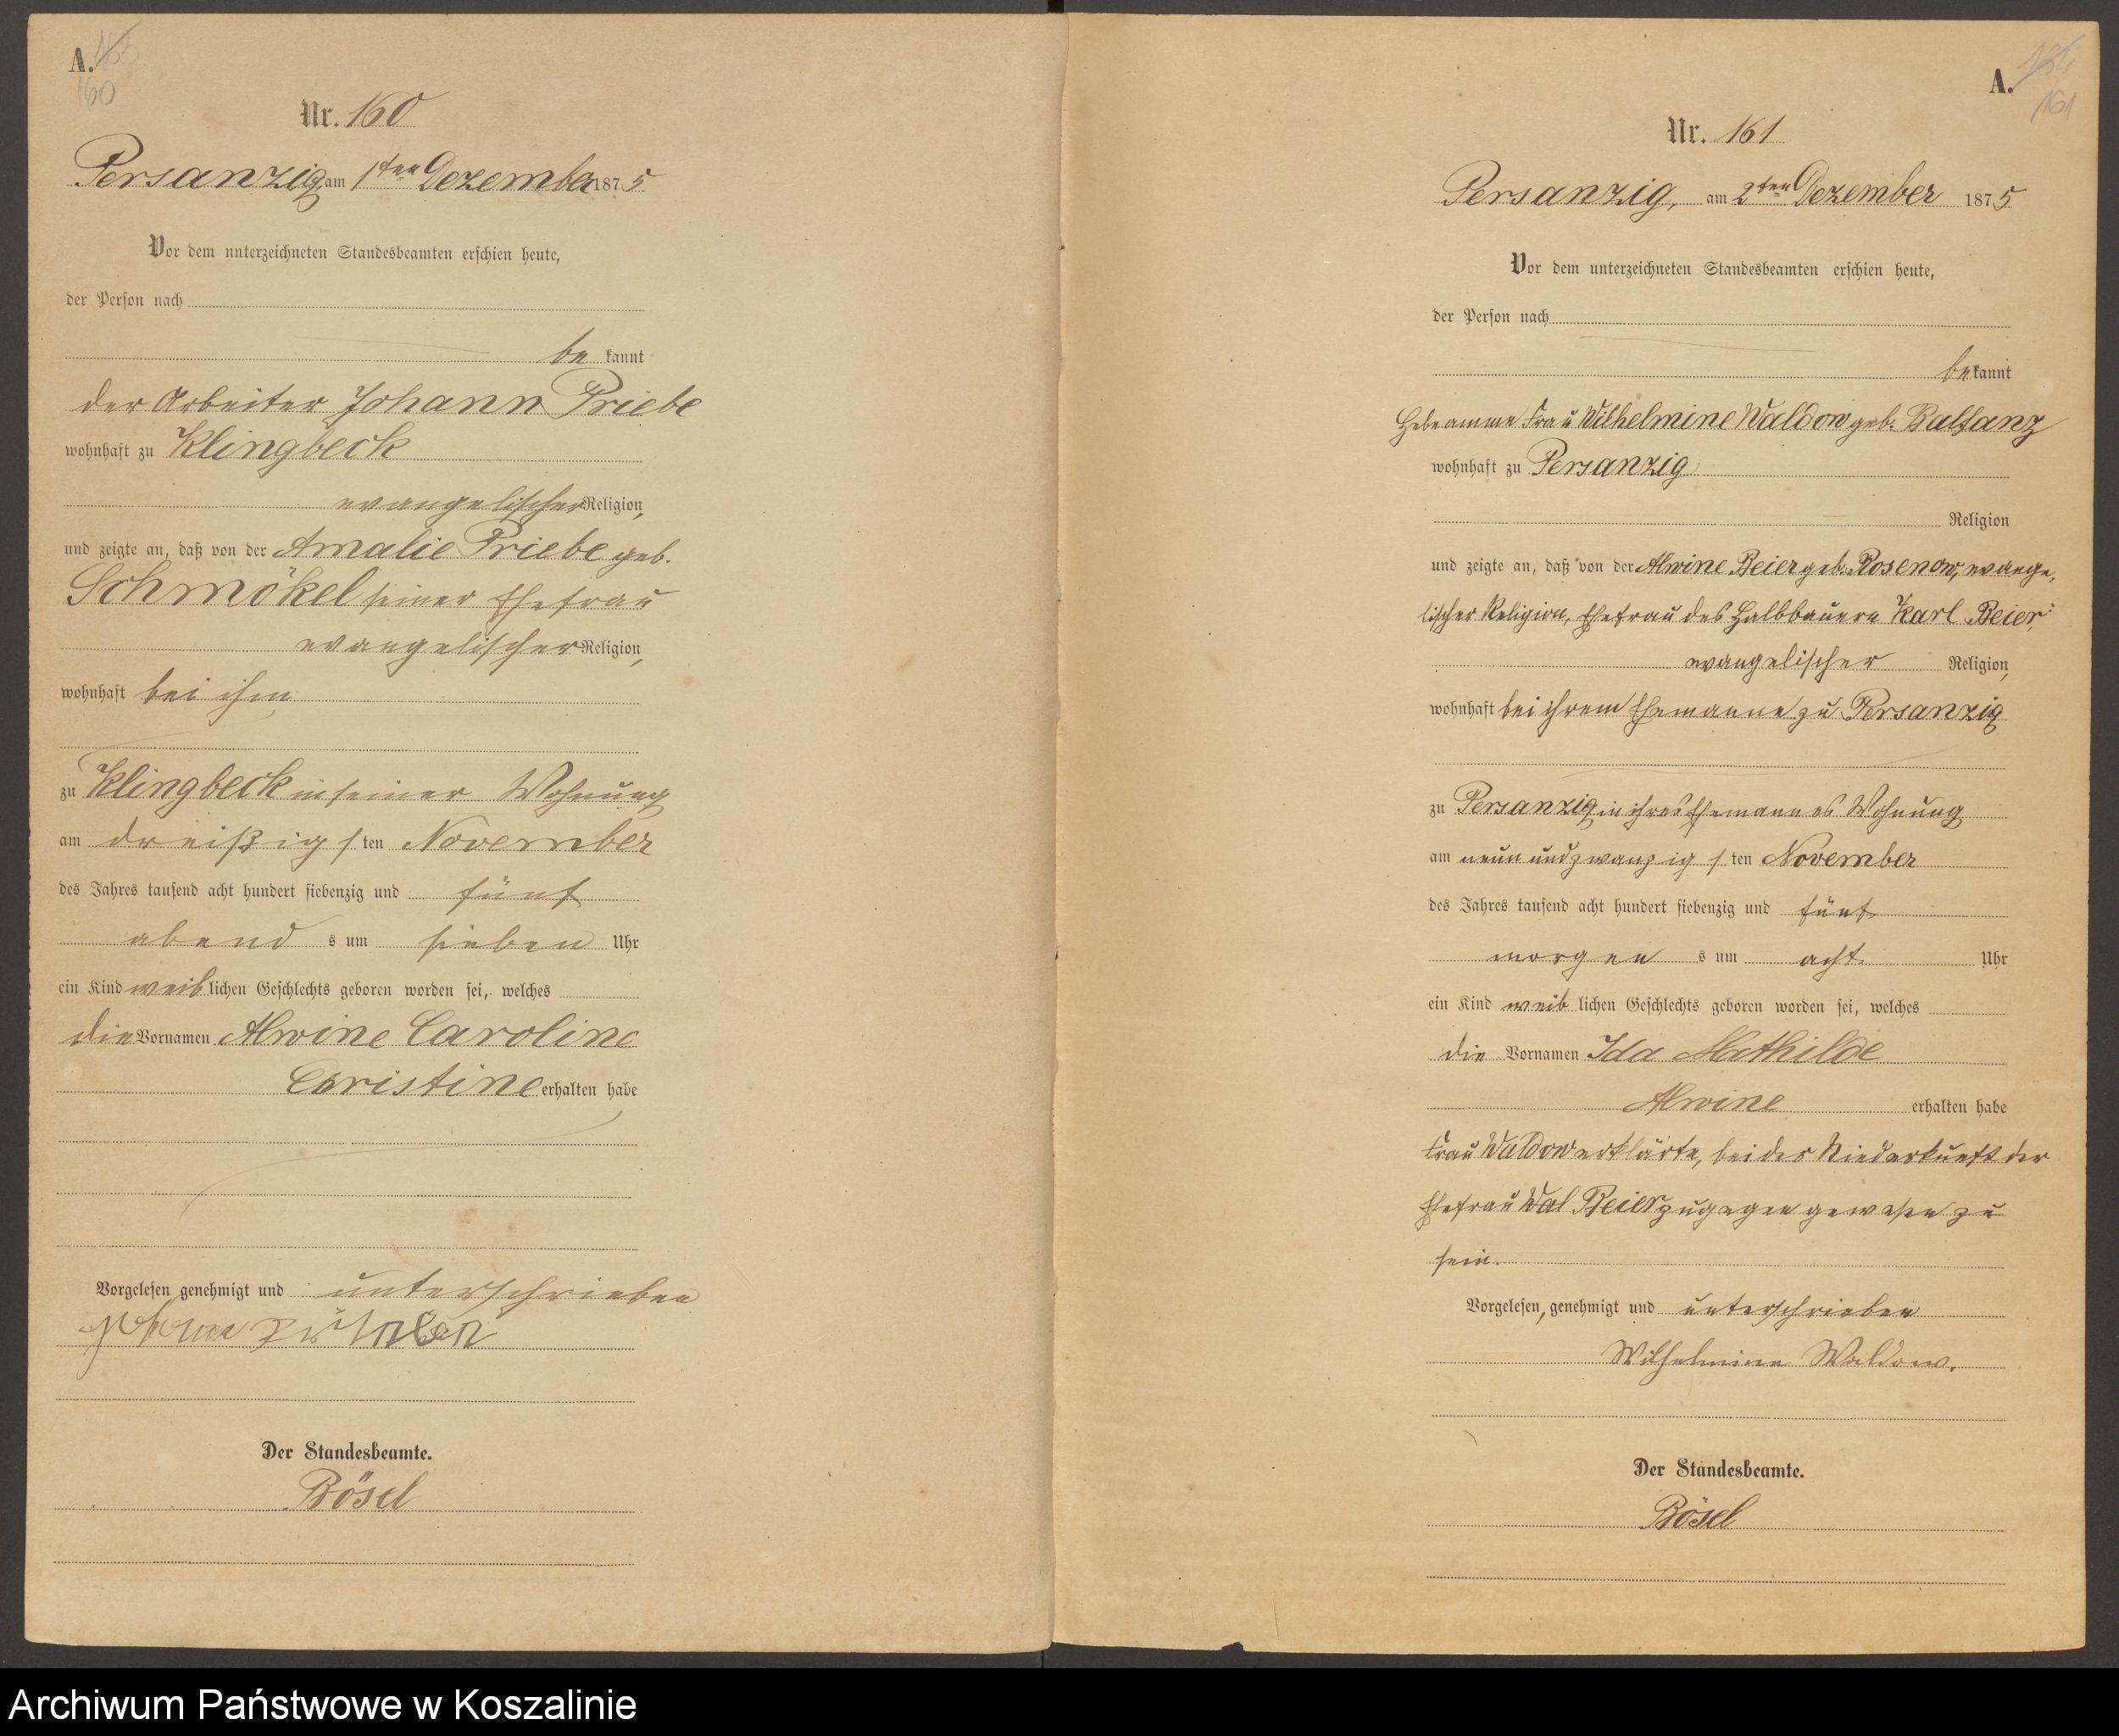 A.
160
Nr. 160
Persanzig am 1ten Dezember 1875
Vor dem unterzeichneten Standesbeamten erschien heute,
der Person nach
be kannt
der Arbeiter Johann Priebe
wohnhaft zu Klingbeck
evangelischer Religion,
und zeigte an, daß von der Amalie Priebe geb.
Schmökel seiner Ehefrau
evangelischer Religion,
wohnhaft bei ihm
zu Klingbeck in seiner Wohnung
am dreißigsten November
des Jahres tausend acht hundert siebenzig und fünf
abend s um sieben Uhr
ein Kind weiblichen Geschlechts geboren worden sei, welches
die Vornamen Alwine Caroline
Christine erhalten habe
Vorgelesen genehmigt und unterschrieben
Der Standesbeamte.
Bösel
A.
161
Nr. 161
Persanzig, am 2ten Dezember 1875
Vor dem unterzeichneten Standesbeamten erschien heute,
der Person nach
bekannt
Hebeamme Frau Wilhelmine Waldow geb. Balfanz
wohnhaft zu Persanzig
Religion
und zeigte an, daß von der Alwine Beier geb. Rosenow, evange,
lischer Religion, Ehefrau des Halbbauern Karl Beier,
evangelischer Religion,
wohnhaft bei ihrem Ehemanne zu Persanzig
zu Persanzig in ihres Ehemannes Wohnung
am neun und zwanzig sten November
des Jahres tausend acht hundert siebenzig und fünf
morgen s um acht Uhr
ein Kind weib lichen Geschlechts geboren worden sei, welches
die Vornamen Ida Mathilde
Alwine erhalten habe
Frau Waldow erklärte, bei der Niederkunft der
Ehefrau Beier zugegen gewesen zu
sein.
Vorgelesen, genehmigt und unterschrieben
Wilhelmine Waldow.
Der Standesbeamte.
Bösel
Archiwum Państwowe w Koszalinie